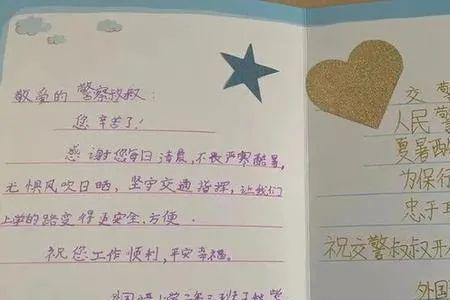 敬爱的警察叔叔:
您辛苦了!
感谢您每日清晨,不畏严寒酷暑,
无惧风吹日晒,坚守交通指挥,让我们
上学的路变得更安全、方便.
祝您工作顺利,平安幸福。
外国语小学二年三班
交警
人民警
夏暑酷
为保行
忠于
祝交警叔叔开
外国